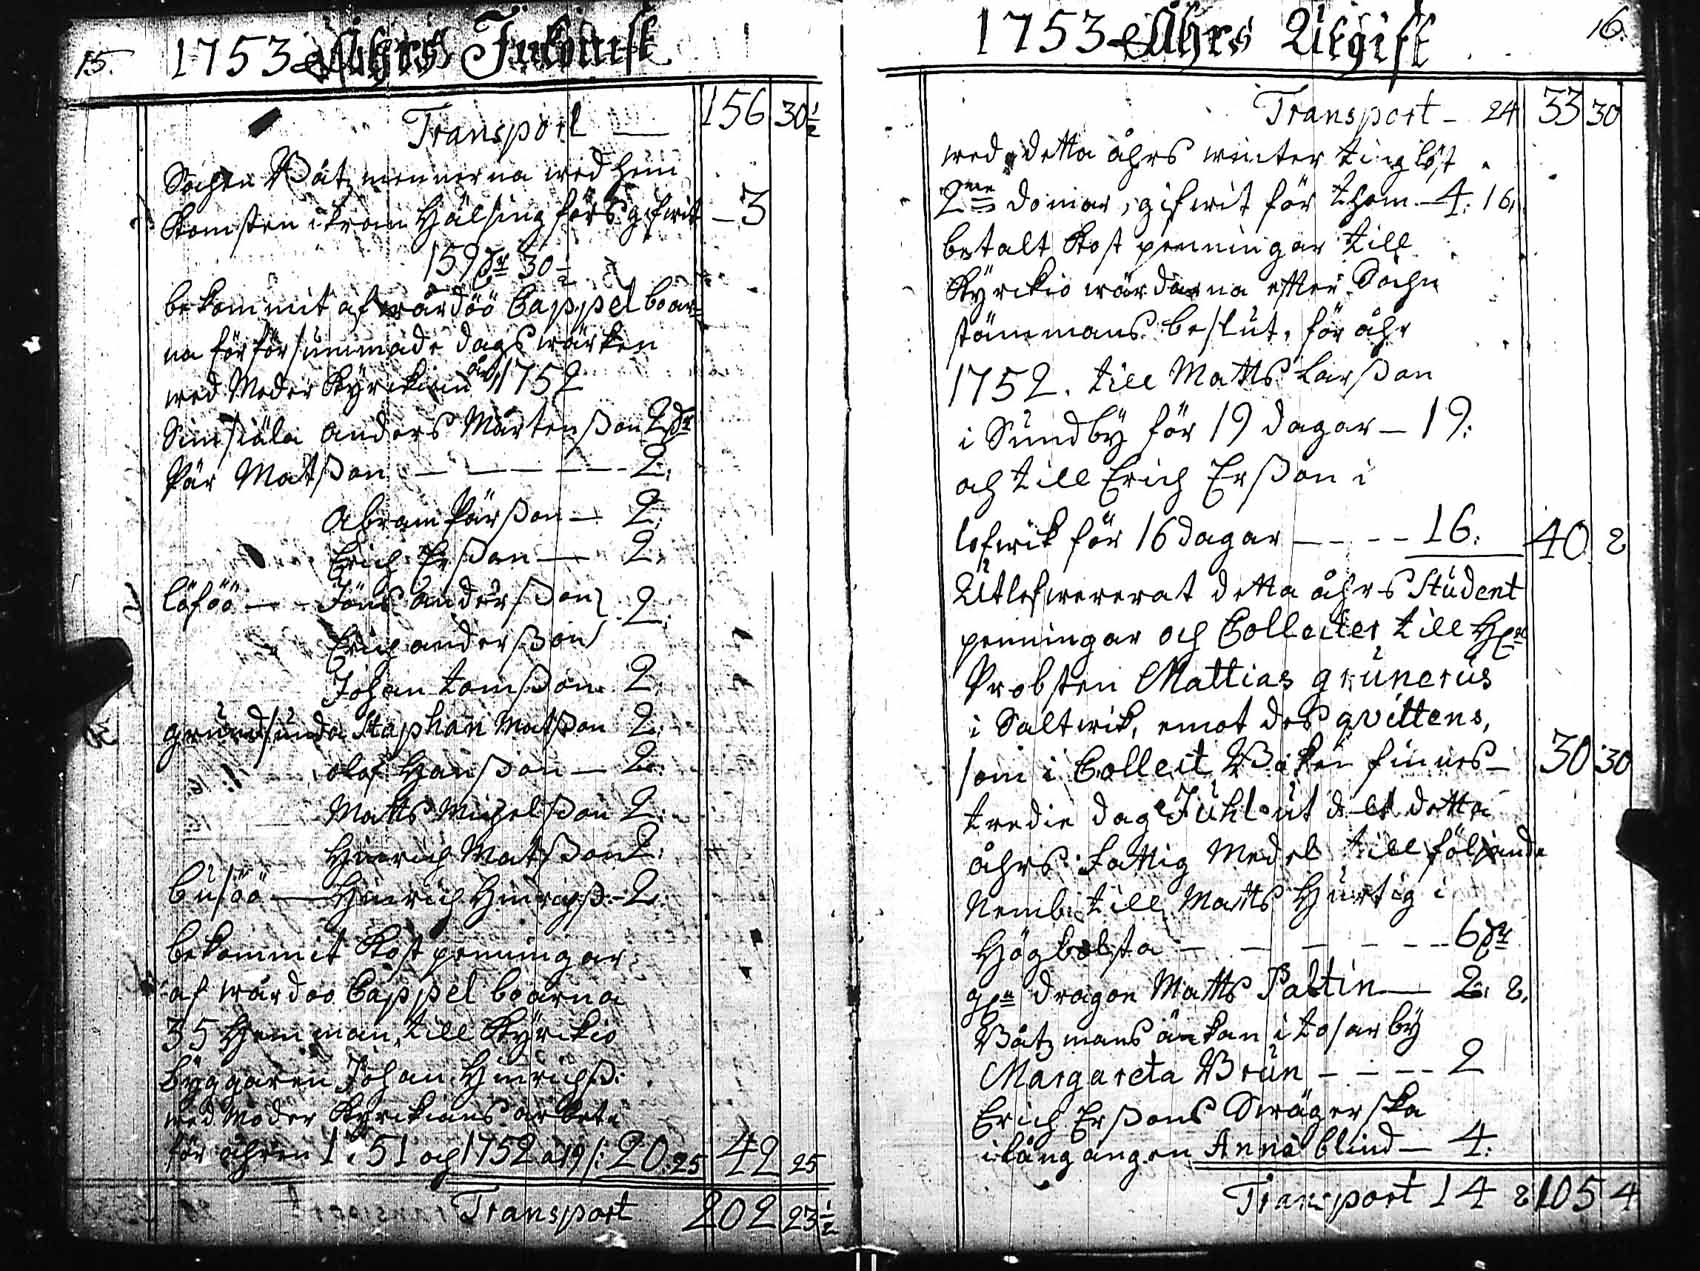 15. 1753 Åhrs Inkomst
Transport — 156 30½
Sochn Båtzmennerna wed hem
komsten ifrom Hälsingfors gifwit — 3
159 dr 30½
bekommit af wårdöö Cappelboar
na för försummade dagswärken
wed Moder Kyrkian åhr 1752
Simskäla Anders Mårtensson 2 dr
Pär Matsson — — — — — 2.
Abram Pärsson — 2.
Erich Ersson — 2.
löföö — Jöns Andersson 2.
Erich andersson
Johan tomsson 2.
grundsunda Staphan Matsson 2.
olof Hansson — 2.
Matts Michelsson 2.
Hinrich Matsson 2.
busöö — Hinrich Hinrichss. 2.
bekommit kostpenningar
af wårdöö Cappelboarna
35 Hemman, till Kyrkio
byggaren Johan Hinrichss.
wed Moder Kyrkians arbete
för åhren 1751 och 1752 a 19 /: 20.25 42 25
Transport 202 23½
1753 Åhrs Utgift 16.
Transport — 24 33 30
wed detta åhrs winter ting löst
2ne domar, gifwit för them — 4: 16.
betalt kostpenningar till
Kyrkio wärdarna efter Sochn
stämmans beslut, för åhr
1752. till Matts Larsson
i Sundby för 19 dagar — 19:
och till Erich Ersson i
lofwik för 16 dagar — — — 16: 40 2
Utlefwererat detta åhrs Student
penningar och Collecter till Hr
Probsten Mattias grunerus
i Saltwik, emot des qvittens,
som i Collect Boken finnes — 30 30
tredie dag Juhl utdelt detta
åhrs fattig Medel till följande
Nembl. till Matts Hurtig i
Högbolsta — — — — — 6 dr
dragon Matts Paltin — 2. 2.
Båtzmans änkan i tosarby
Margareta Brun — — — 2
Erich Erssons Swägerska
i långangen Anna blind — 4.
Transport 14 2 105 4